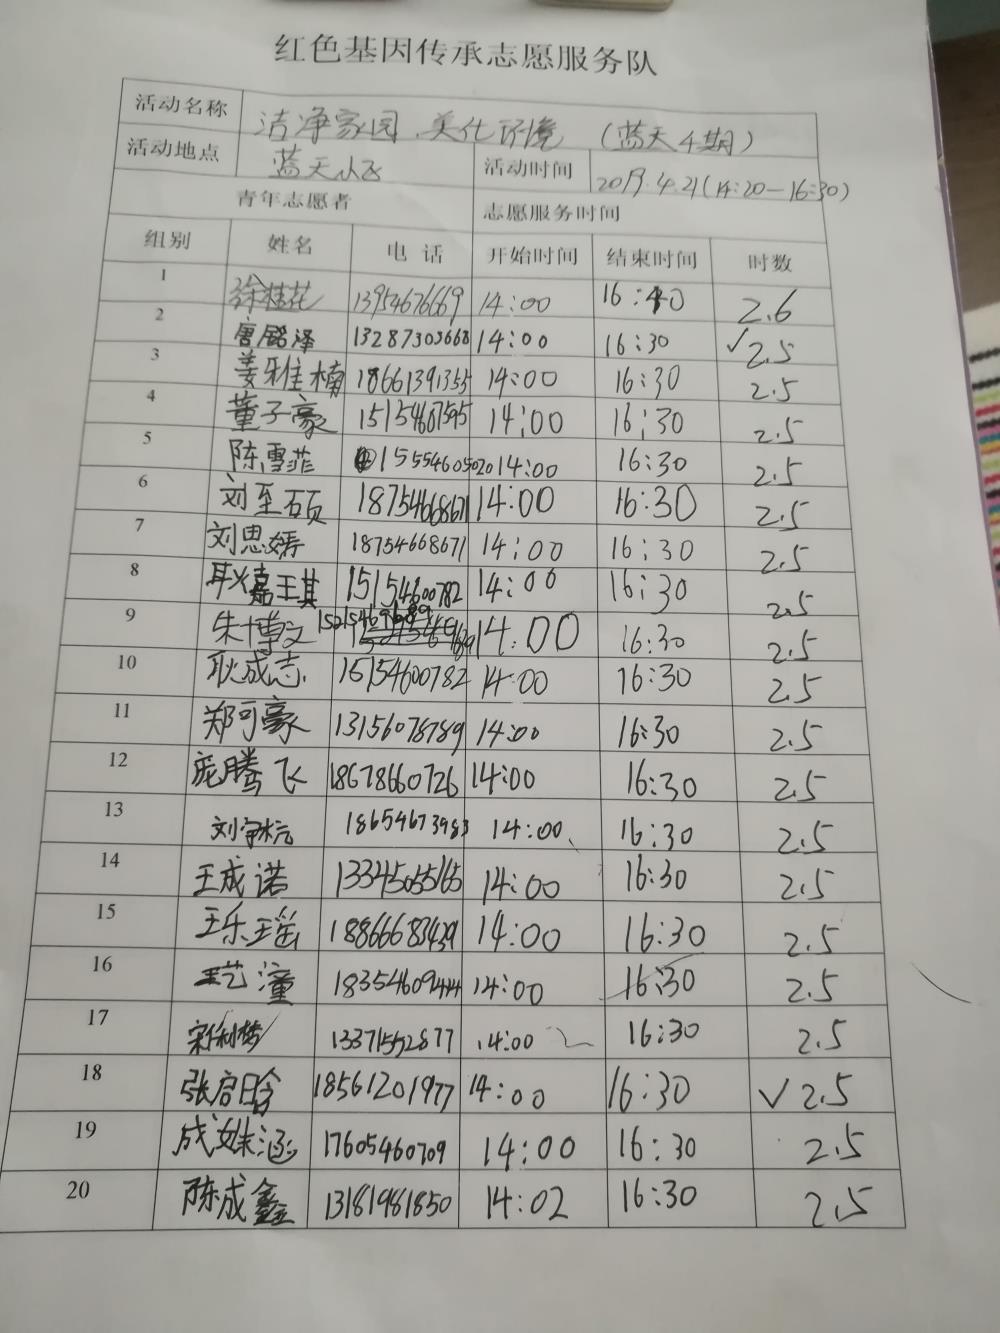 红色基因传承志愿服务队
活动名称 洁净家园.美化环境 (蓝天4期)
活动地点 蓝天小区 活动时间 2019.4.21(14:20-16:30)
青年志愿者 志愿服务时间
组别 姓名 电话 开始时间 结束时间 时数
1 徐桂花 13954676669 14:00 16:40 2.6
2 唐铭泽 13287303668 14:00 16:30 ✓2.5
3 姜雅楠 18661391355 14:00 16:30 2.5
4 董子豪 15154607595 14:00 16:30 2.5
5 陈雪菲 15554605020 14:00 16:30 2.5
6 刘至硕 18754668671 14:00 16:30 2.5
7 刘思婷 18754668671 14:00 16:30 2.5
8 耿嘉琪 15154600782 14:00 16:30 2.5
9 朱博文 15215469689 14:00 16:30 2.5
10 耿成志 15154600782 14:00 16:30 2.5
11 郑可豪 13156078789 14:00 16:30 2.5
12 庞腾飞 18678660726 14:00 16:30 2.5
13 刘宇杭 18654673983 14:00 16:30 2.5
14 王成诺 13345055165 14:00 16:30 2.5
15 王乐瑶 18866683439 14:00 16:30 2.5
16 王艺潼 18354609444 14:00 16:30 2.5
17 宋利梦 13371552877 14:00 16:30 2.5
18 张启晗 18561201977 14:00 16:30 ✓2.5
19 成姝涵 17605460709 14:00 16:30 2.5
20 陈成鑫 13181981850 14:02 16:30 2.5